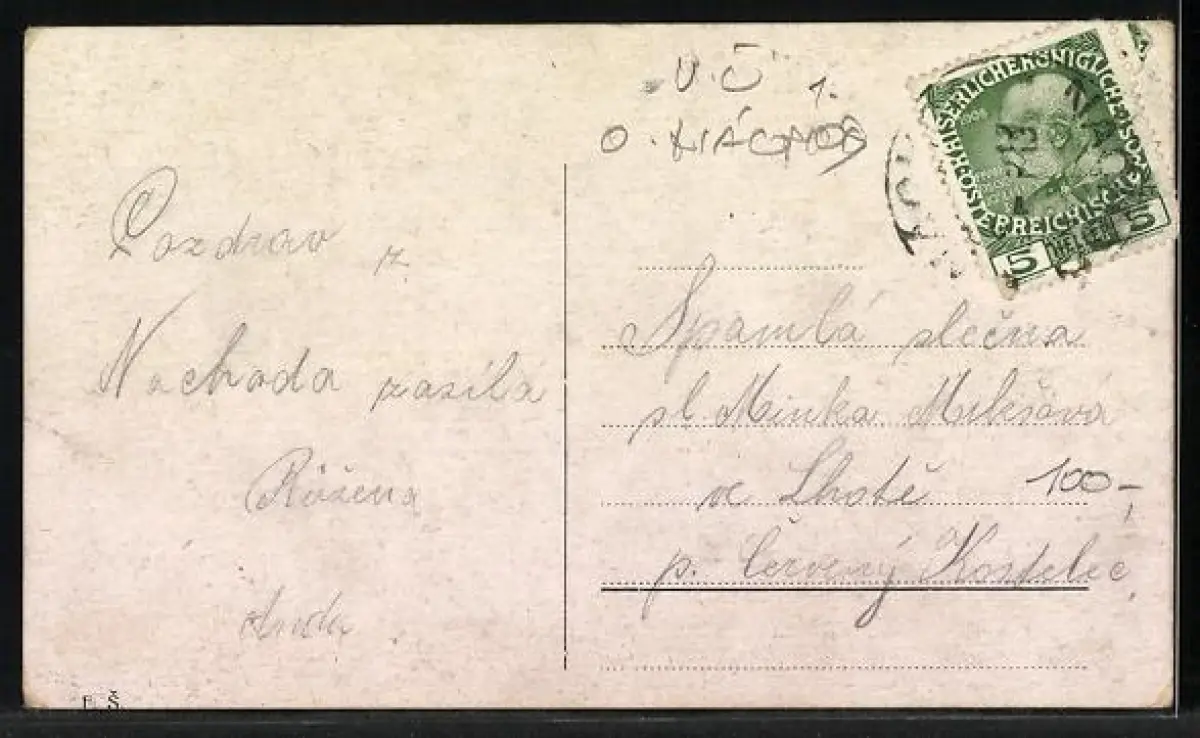 V.Č 1.
O. NÁCHOD
Pozdrav z
Náchoda zasílá
Růžena
KAISERLICHE KÖNIGLICHE
ÖSTERREICHISCHE
1908
5 HELLER 5
slečna
sl. Minka
ve Lhotě 100-
p. Červený Kostelec
F. Š.